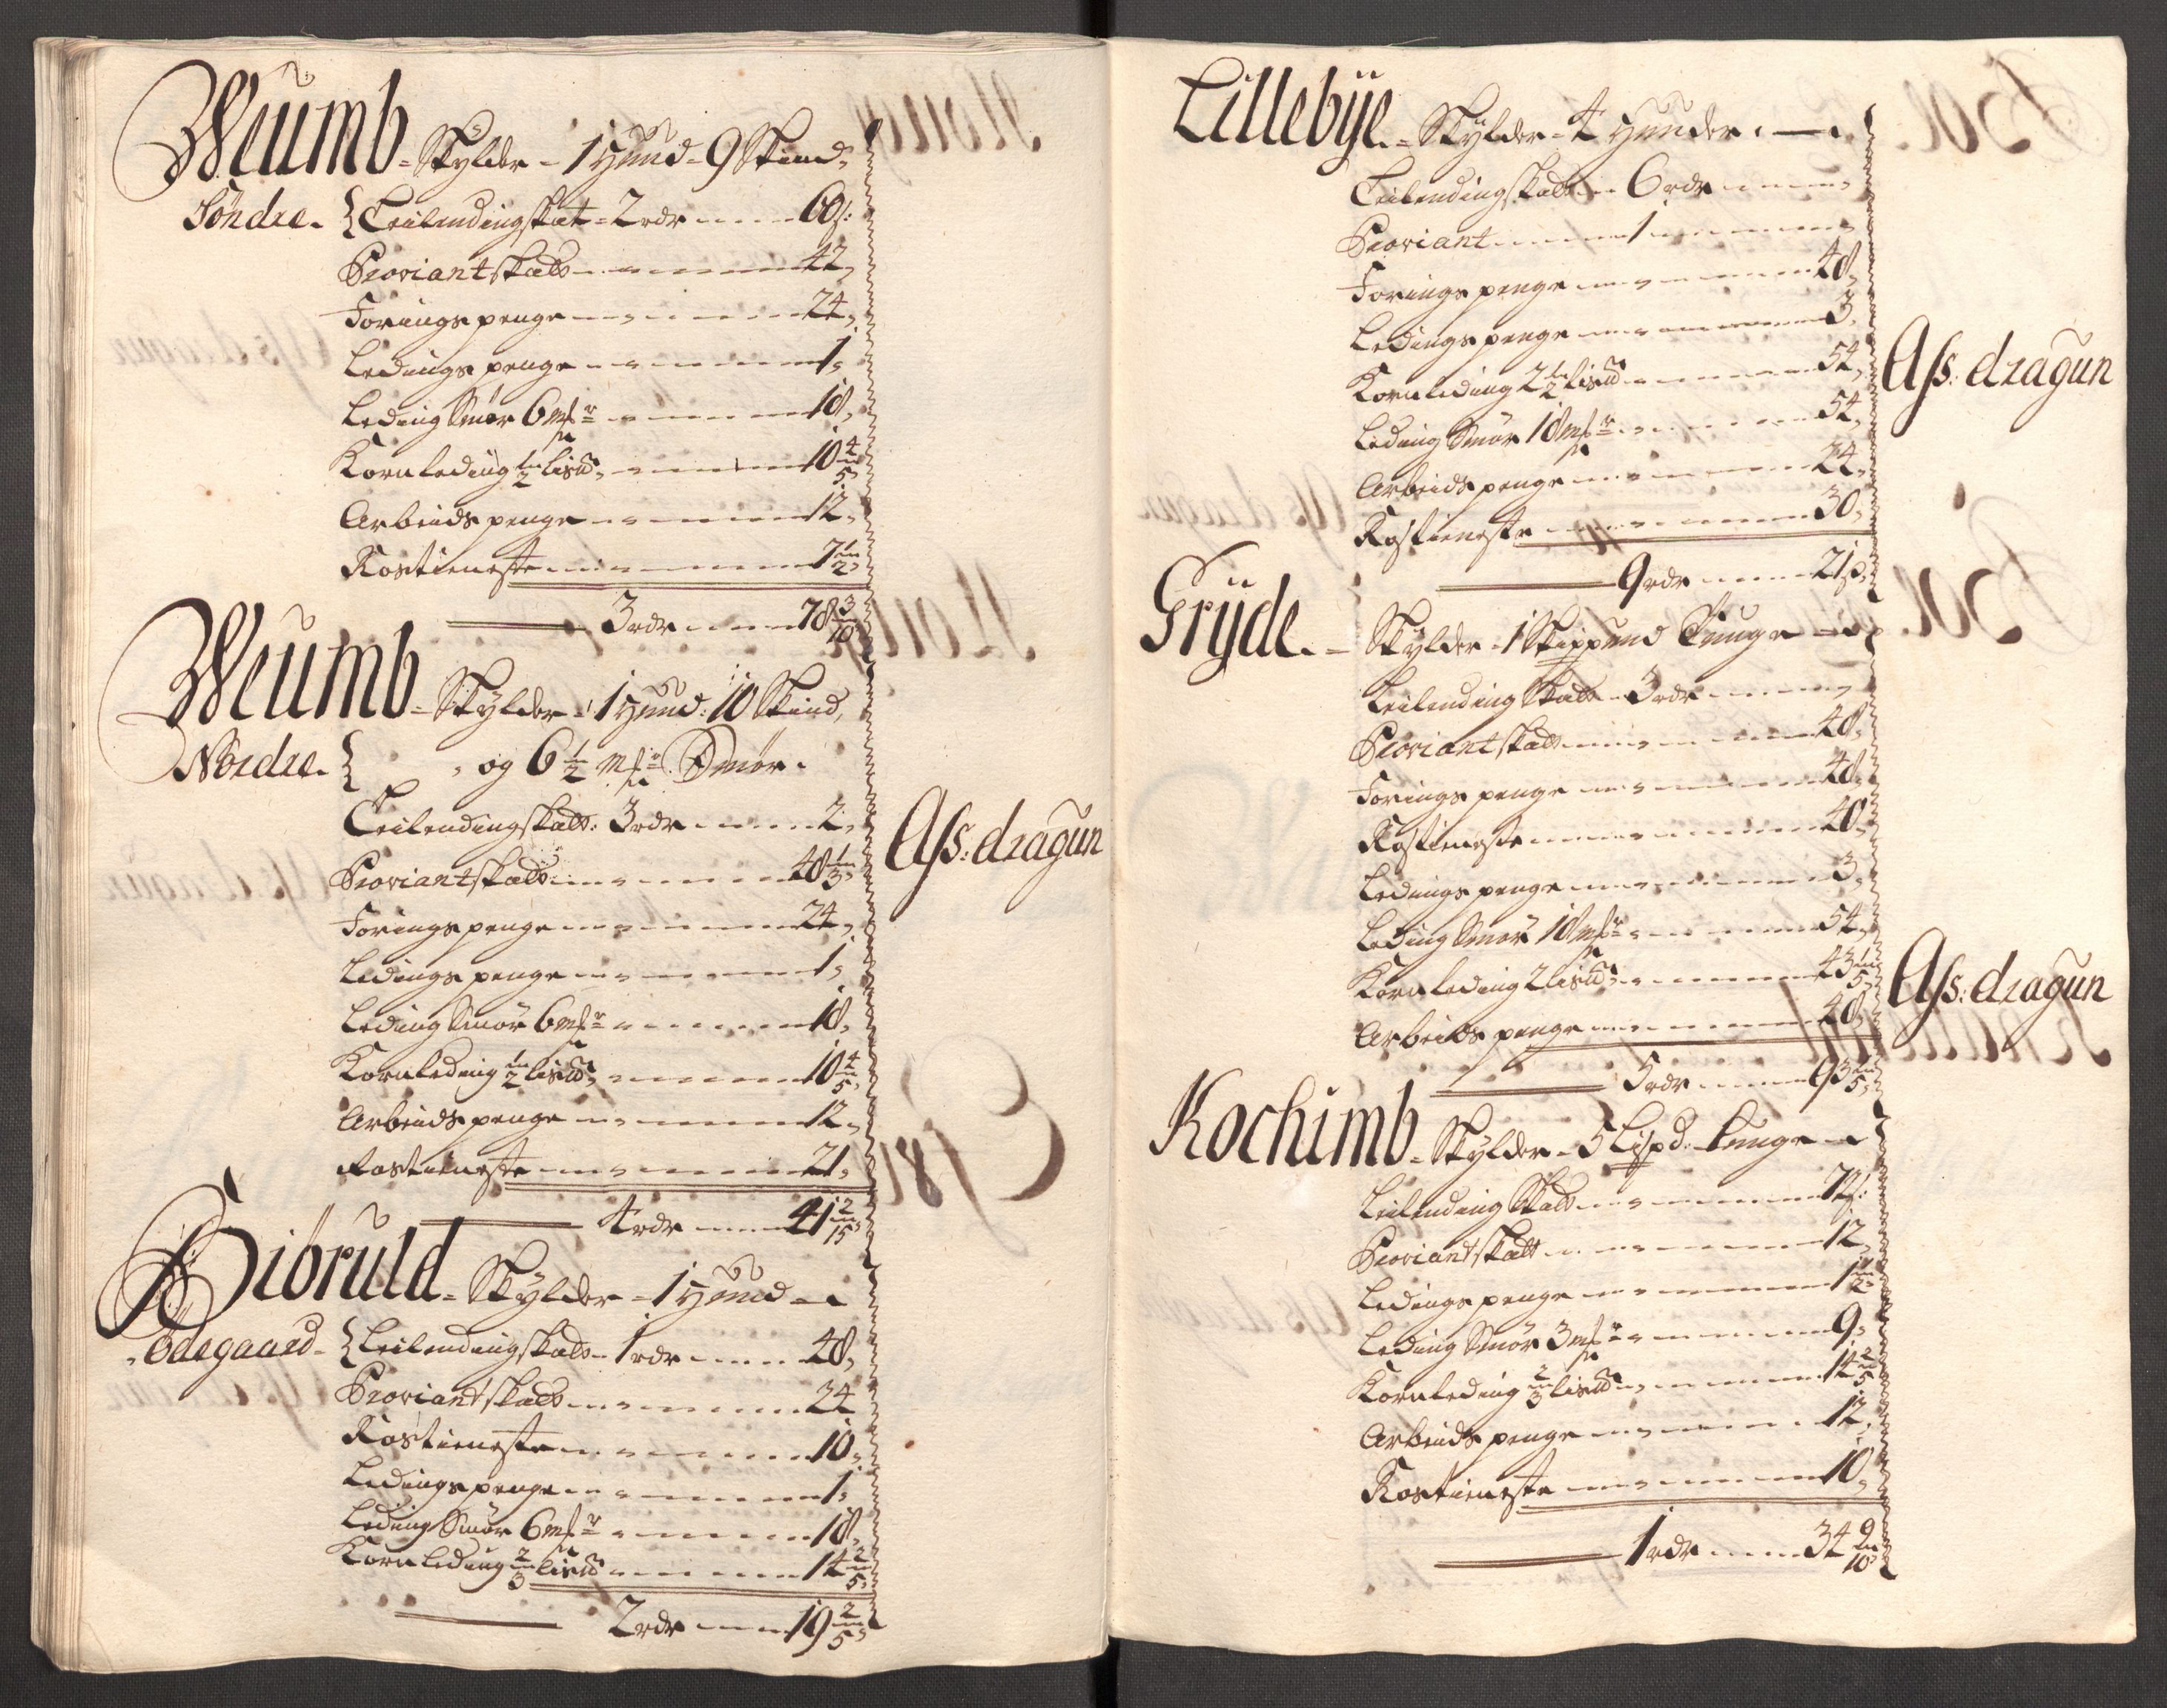 Weumb - Skylder - 1 Hund - 9 Skind,
Söndre. { Leilendingskat = 2 rdr 60 s:
Proviantskatt 42,
Foringspenge 24,
Ledingspenge 1,
Leding Smör 6 mkr 18,
Kornleding 1/2 lispd 10 4/5,
Arbeidspenge 12,
Rostieneste 7 1/2,
3 rdr 78 3/10
Weumb - Skylder - 1 Hund: 10 Skind,
Nordre. { og 6 1/2 mkr Smör.
Leilendingskatt: 3 rdr 2,
Proviantskatt 48 1/3,
Foringspenge 24,
Ledingspenge 1,
Leding Smör 6 mkr 18,
Kornleding 1/2 lispd 10 4/5,
Arbeidspenge 12,
Rostieneste 21,
4 rdr 41 2/15,
Afs: dragun
Biöruld - Skylder - 1 Hund
Ödegaard - { Leilendingskatt - 1 rdr 48,
Proviantskatt 24
Rostieneste 10,
Ledingspenge 1,
Leding Smör 6 mkr 18,
Kornleding 2/3 lispd 14 2/5,
2 rdr 19 2/5,
Lillebÿe - Skylder - 4 Hunder
Leilendingskatt 6 rdr
Proviant 1
Foringspenge 48,
Ledingspenge 3,
Kornleding 2 1/2 lispd 54,
Leding Smör 18 mkr 54,
Arbeidspenge 24,
Rostieneste 30,
9 rdr 21 s,
Afs: dragun
Grÿde. - Skylder - 1 Skippund Tunge
Leilending Skatt - 3 rdr
Proviantskatt 48,
Foringspenge 48,
Rostieneste 40,
Ledingspenge 3,
Leding Smör 18 mkr 54,
Kornleding 2 lispd 43 1/5,
Arbeidspenge 48,
5 rdr 93 1/5,
Afs: dragun
Kochimb - Skylder - 5 Lispd: tunge
Leilending Skatt 72 s:
Proviantskatt 12,
Ledingspenge 1 1/2,
Leding Smör 3 mkr 9,
Kornleding 2/3 lispd 14 2/5
Arbeidspenge 12,
Rostieneste 10,
1 rdr 34 9/10,